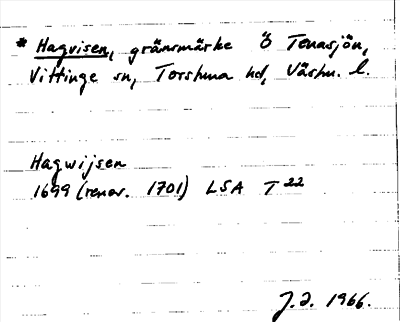 * Hagvisen, gränsmärke Ö Tenasjön,
Vittinge sn, Torstuna hd, Västm. l.
Hagwijsen
1699 (renov. 1701) LSA T 22
J.J. 1966.